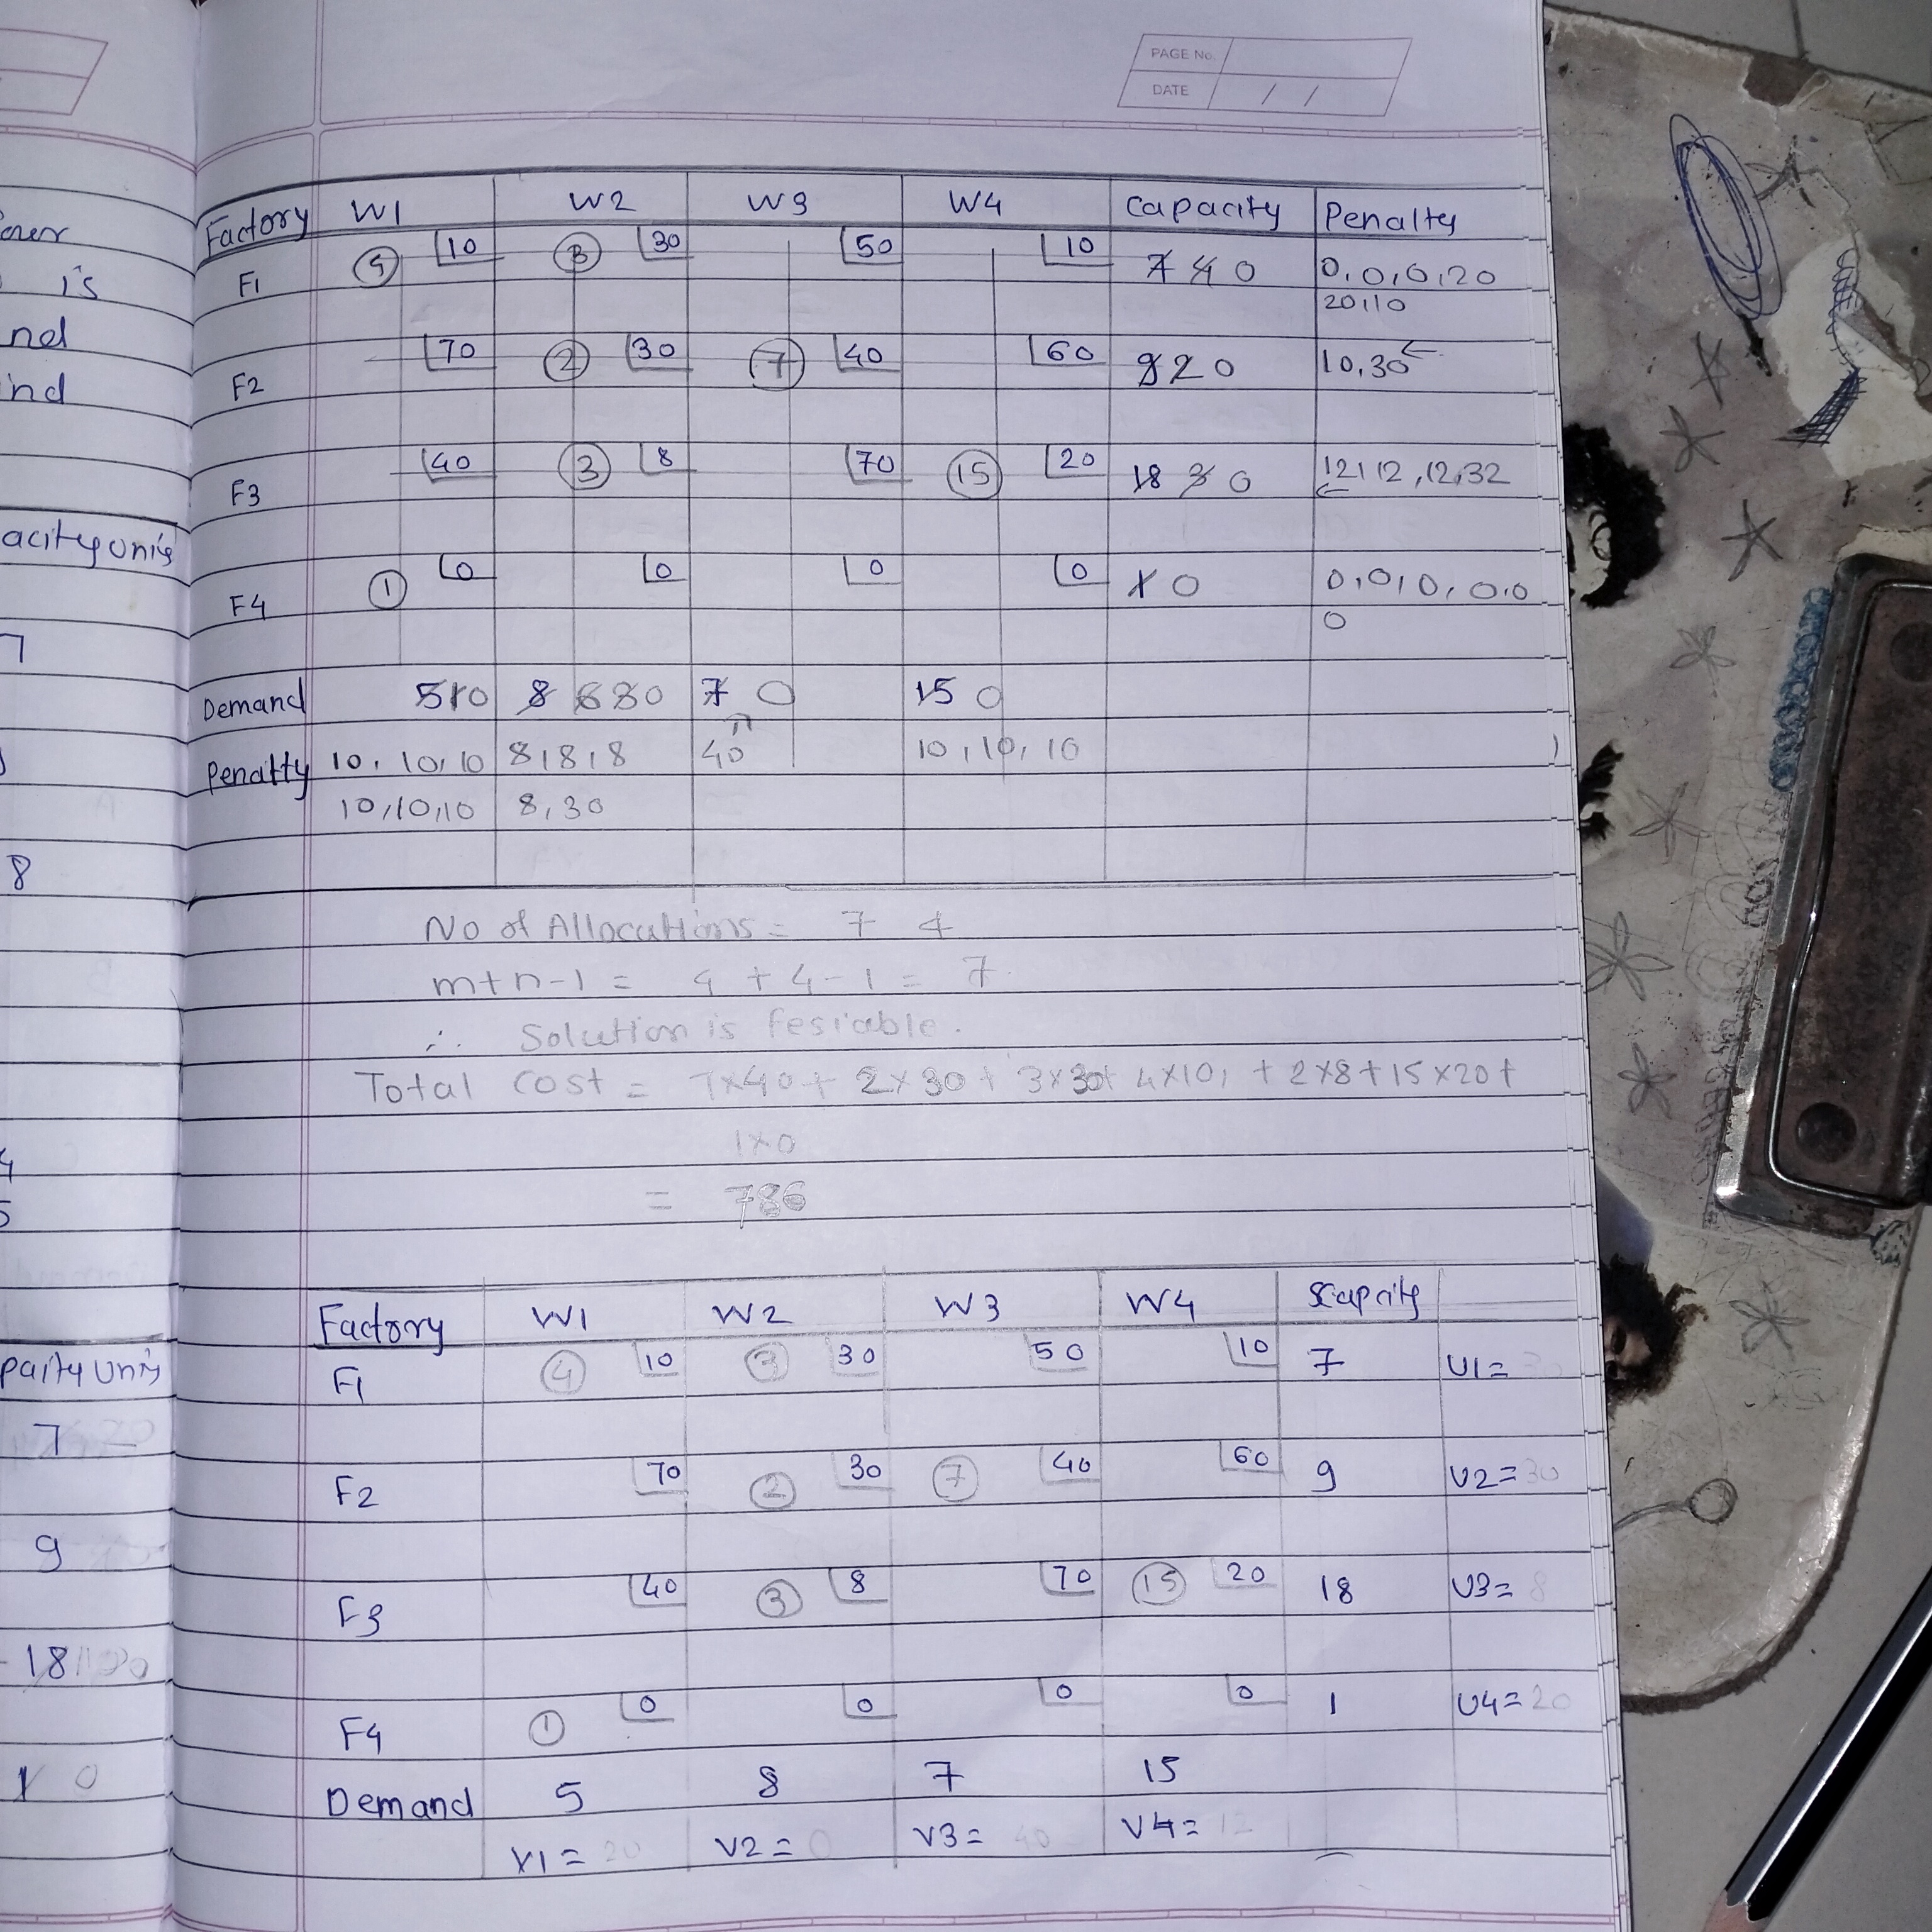 PAGE No.
DATE / /
Factory W1 W2 W3 W4 Capacity Penalty
F1 4 10 3 30 50 10 7 4 0 0,0,0,20
20,10
F2 70 2 30 7 40 60 9 2 0 10,30 ←
F3 40 3 8 70 15 20 18 3 0 12,12,12,32
←
F4 1 0 0 0 0 1 0 0,0,0,0,0
0
Demand 5 1 0 8 6 3 0 7 0 15 0
Penalty 10, 10, 10 8,8,8 40 10, 10, 10
10,10,10 8,30
No of Allocations = 7 4
m+n-1 = 4 + 4 - 1 = 7
∴ Solution is fesiable.
Total cost = 7×40 + 2×30 + 3×30+ 4×10, + 2×8+15×20+
1×0
= 786
Factory W1 W2 W3 W4 Scapcity
F1 4 10 3 30 50 10 7 U1=
F2 70 2 30 7 40 60 9 U2=30
F3 40 3 8 70 15 20 18 U3= 8
F4 1 0 0 0 0 1 U4=20
Demand 5 8 7 15
V1= 20 V2= 0 V3= 40 V4= 12
is
nd
ind
acity units
7
8
4
5
paity Units
7
9
18
1 0